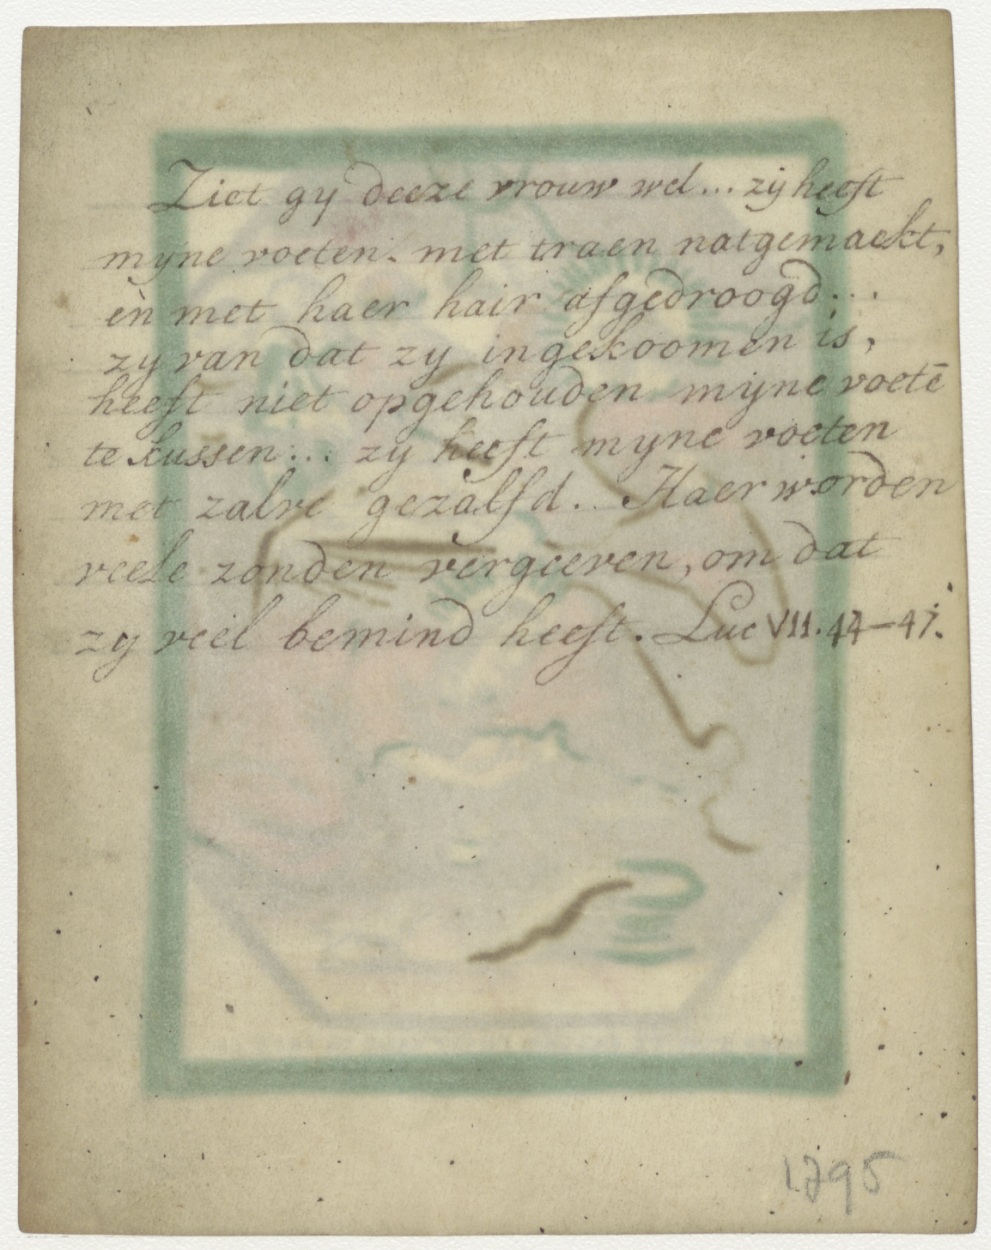 Ziet gy deeze vrouw wel... zy heeft
myne voeten. met traen natgemaekt,
èn met haer hair afgedroogd...
zy van dat zy ingekoomen is,
heeft niet opgehouden myne voetē
te kussen... zy heeft myne voeten
met zalve gezalfd... Haer worden
veele zonden vergeeven, om dat
zy veel bemind heeft. Luc VII. 44-47.
1795